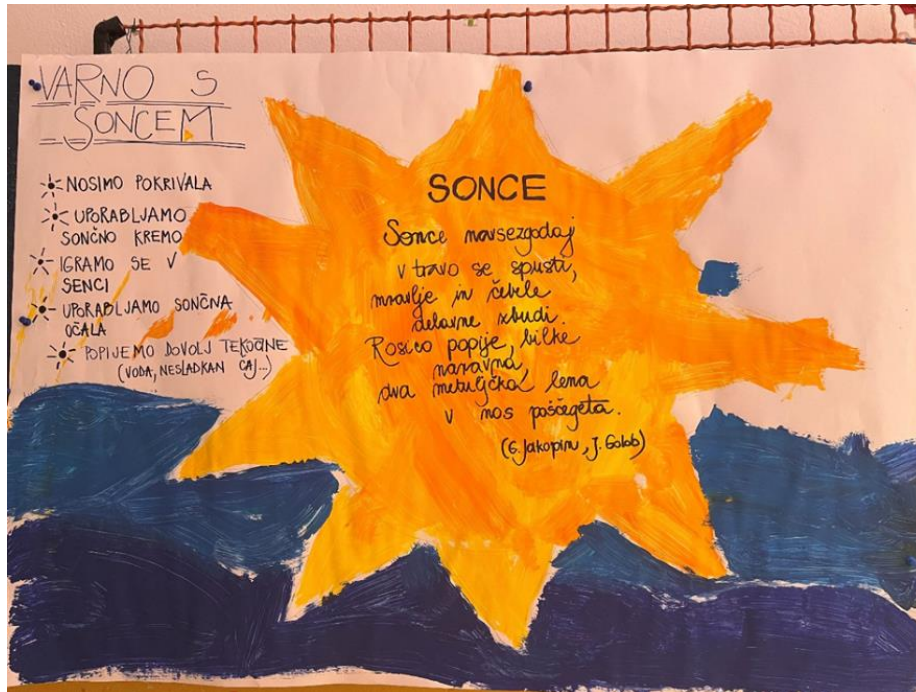 VARNO S
SONCEM
NOSIMO POKRIVALA
UPORABLJAMO
SONČNO KREMO
IGRAMO SE V
SENCI
UPORABLJAMO SONČNA
OČALA
POPIJEMO DOVOLJ TEKOČINE
(VODA, NESLADKAN ČAJ...)
SONCE
Sonce navsezgodaj
v travo se spusti,
mravlje in čebele
delavne zbudi.
Rosico popije, bilke
naravna,
dva metuljčka lena
v nos poščegeta.
(G. Jakopin, J. Golob)